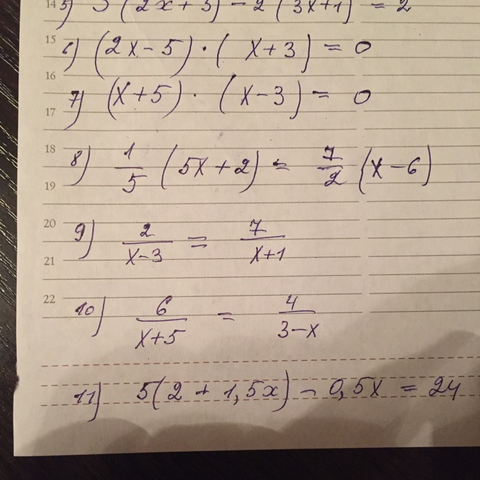 14
5) 3(2x+3) - 2(3x+1) = 2
15
6) (2x-5) · (x+3) = 0
16
7) (x+5) · (x-3) = 0
17
18
8) 1/5 (5x+2) = 7/2 (x-6)
19
20
9) 2/(x-3) = 7/(x+1)
21
22
10) 6/(x+5) = 4/(3-x)
11) 5(2 + 1,5x) - 0,5x = 24